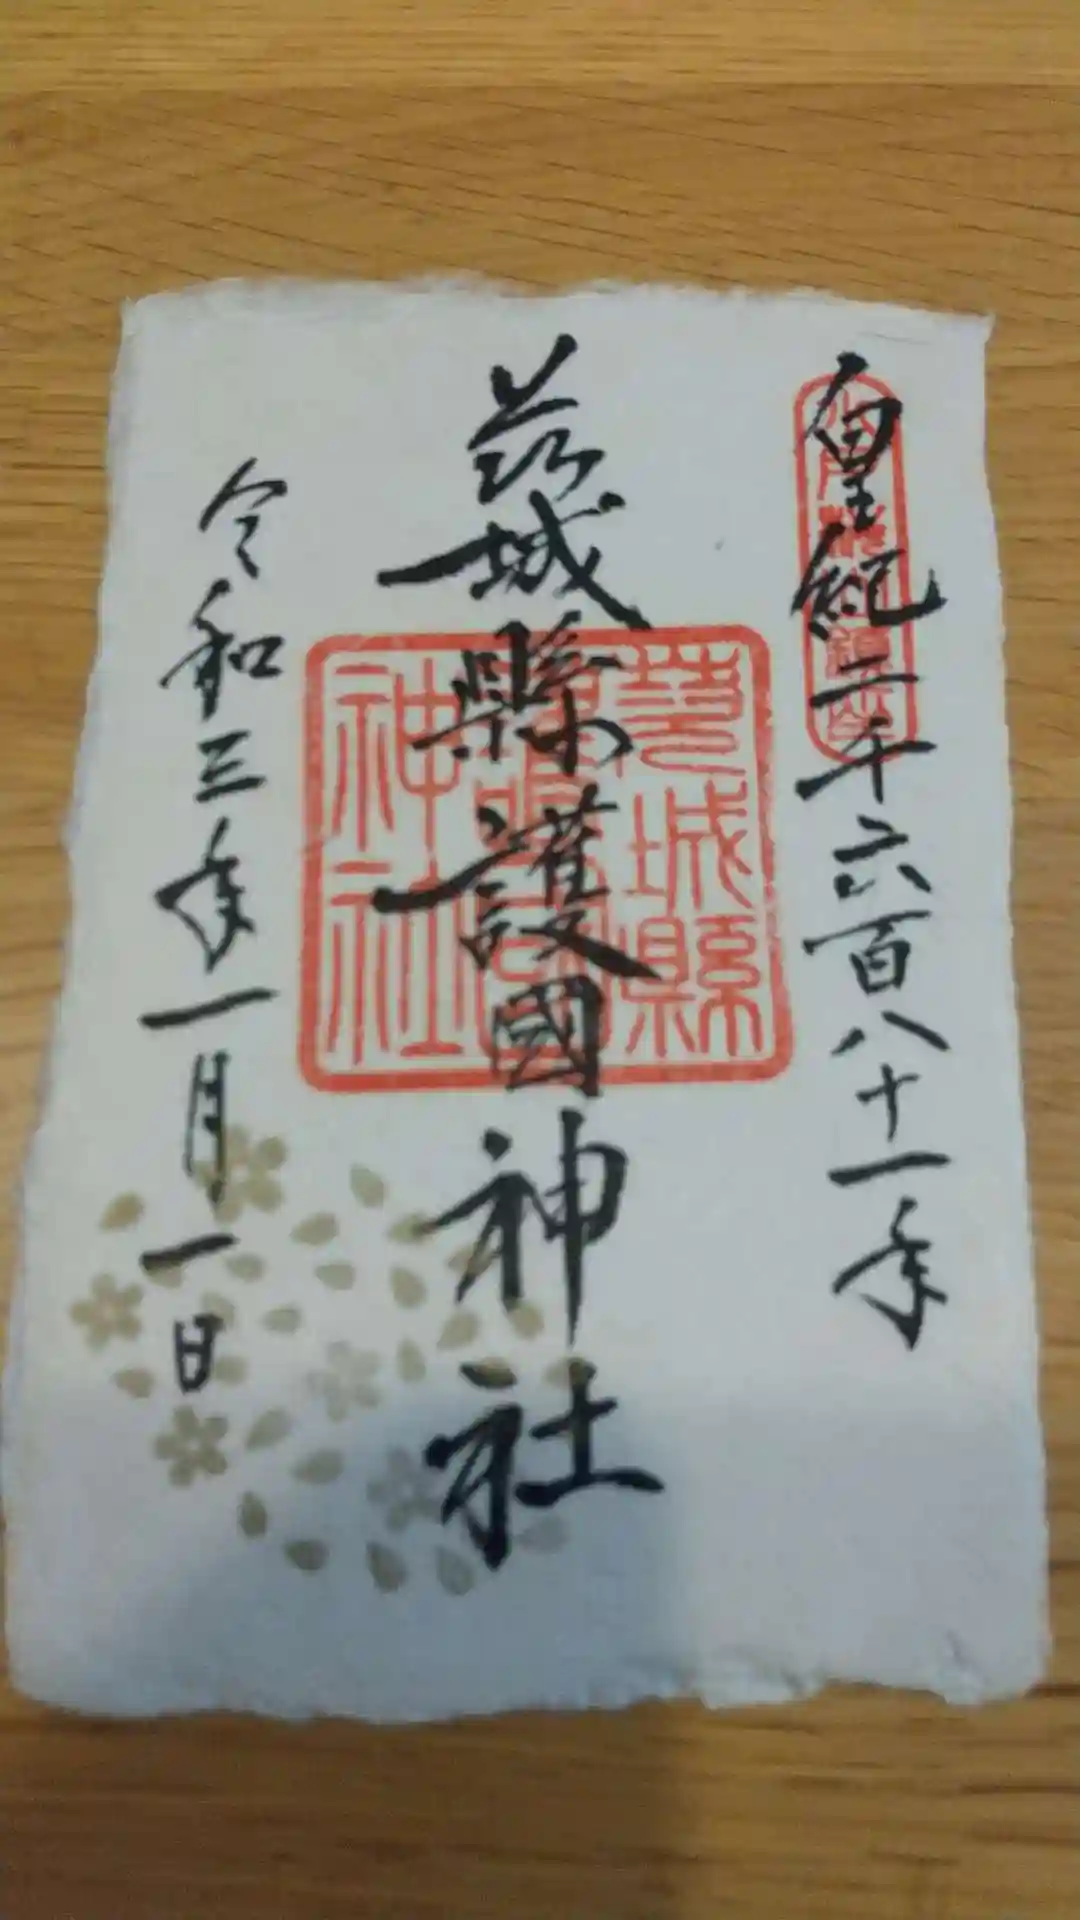 皇紀二千六百八十一年
茨城縣護國神社
茨城縣
護國
神社
令和三年一月一日